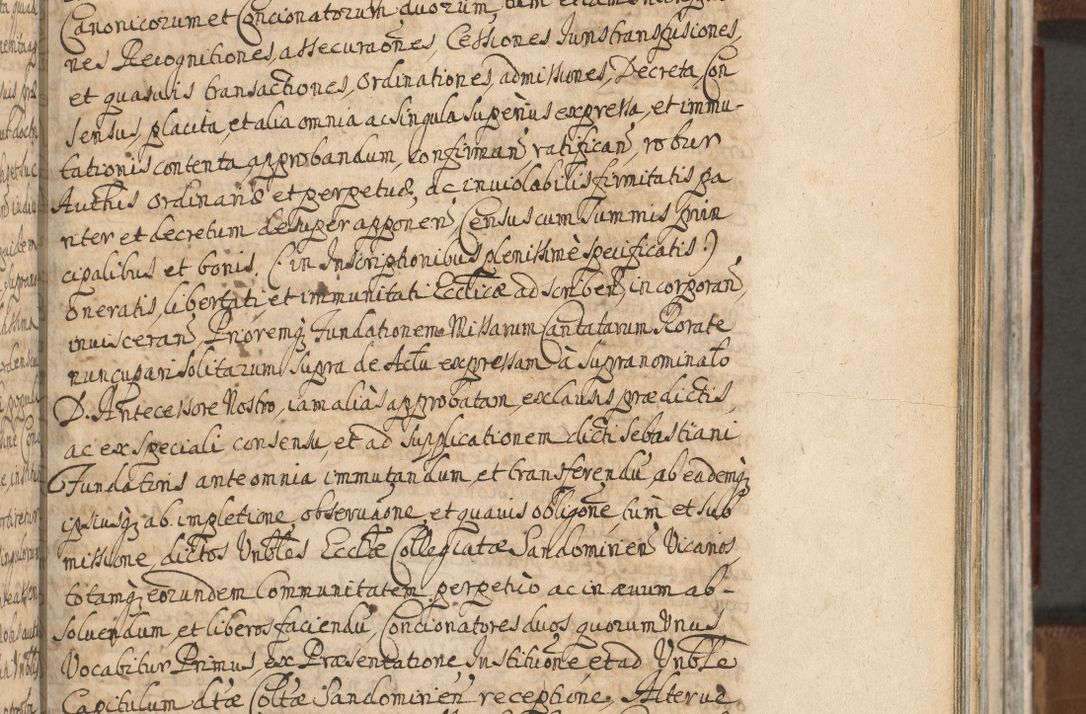 Canonicorum et Concionatorum duorum, tum etiam
nes Recognitiones, assecuraones, Cessiones Iuris transfusiones,
et quasuis transactiones, ordinationes, admissiones, Decreta, Con
sensus, placita, et alia omnia ac singula superius expressa, et immu-
tationis contenta, approbandum, confirman, ratifican, robur
Authis ordinariæ et perpetuæ, ac inviolabilis firmitatis pa
riter et decretum desuper apponen, Census cum summis prin
cipalibus et bonis. (in Inscriptionibus plenissimè specificatis:)
oneratis, libertati et immunitati Ecclicæ adscriben, incorporan,
inuisceran, Prioremq; Fundationem Missarum Cantatarum Rorate
nuncupari solitarum, supra de Actu expressam à supranominato
D. Antecessore Nostro, iam aliàs approbatam, exclausis prædictis,
ac ex speciali consensu, et ad supplicationem dicti Sebastiani
Fundatoris ante omnia immutandum, et transferendu, ab eademq;
ipsiusq; ab impletione, observaone, et quauis obligone tum et sub
missione, dictos Vnbles Ecclæ Collegiatæ Sandomirien Vicarios
totamq; eorundem Communitatem perpetuò ac in ævum ab-
soluendum, et liberos faciendu, Concionatores duos quorum Vnus
Vocabitur Primus, ex Præsentatione Instituone et ad Vnble
Capitulum dtæ Coltæ Sandomirien receptione, Alter ve